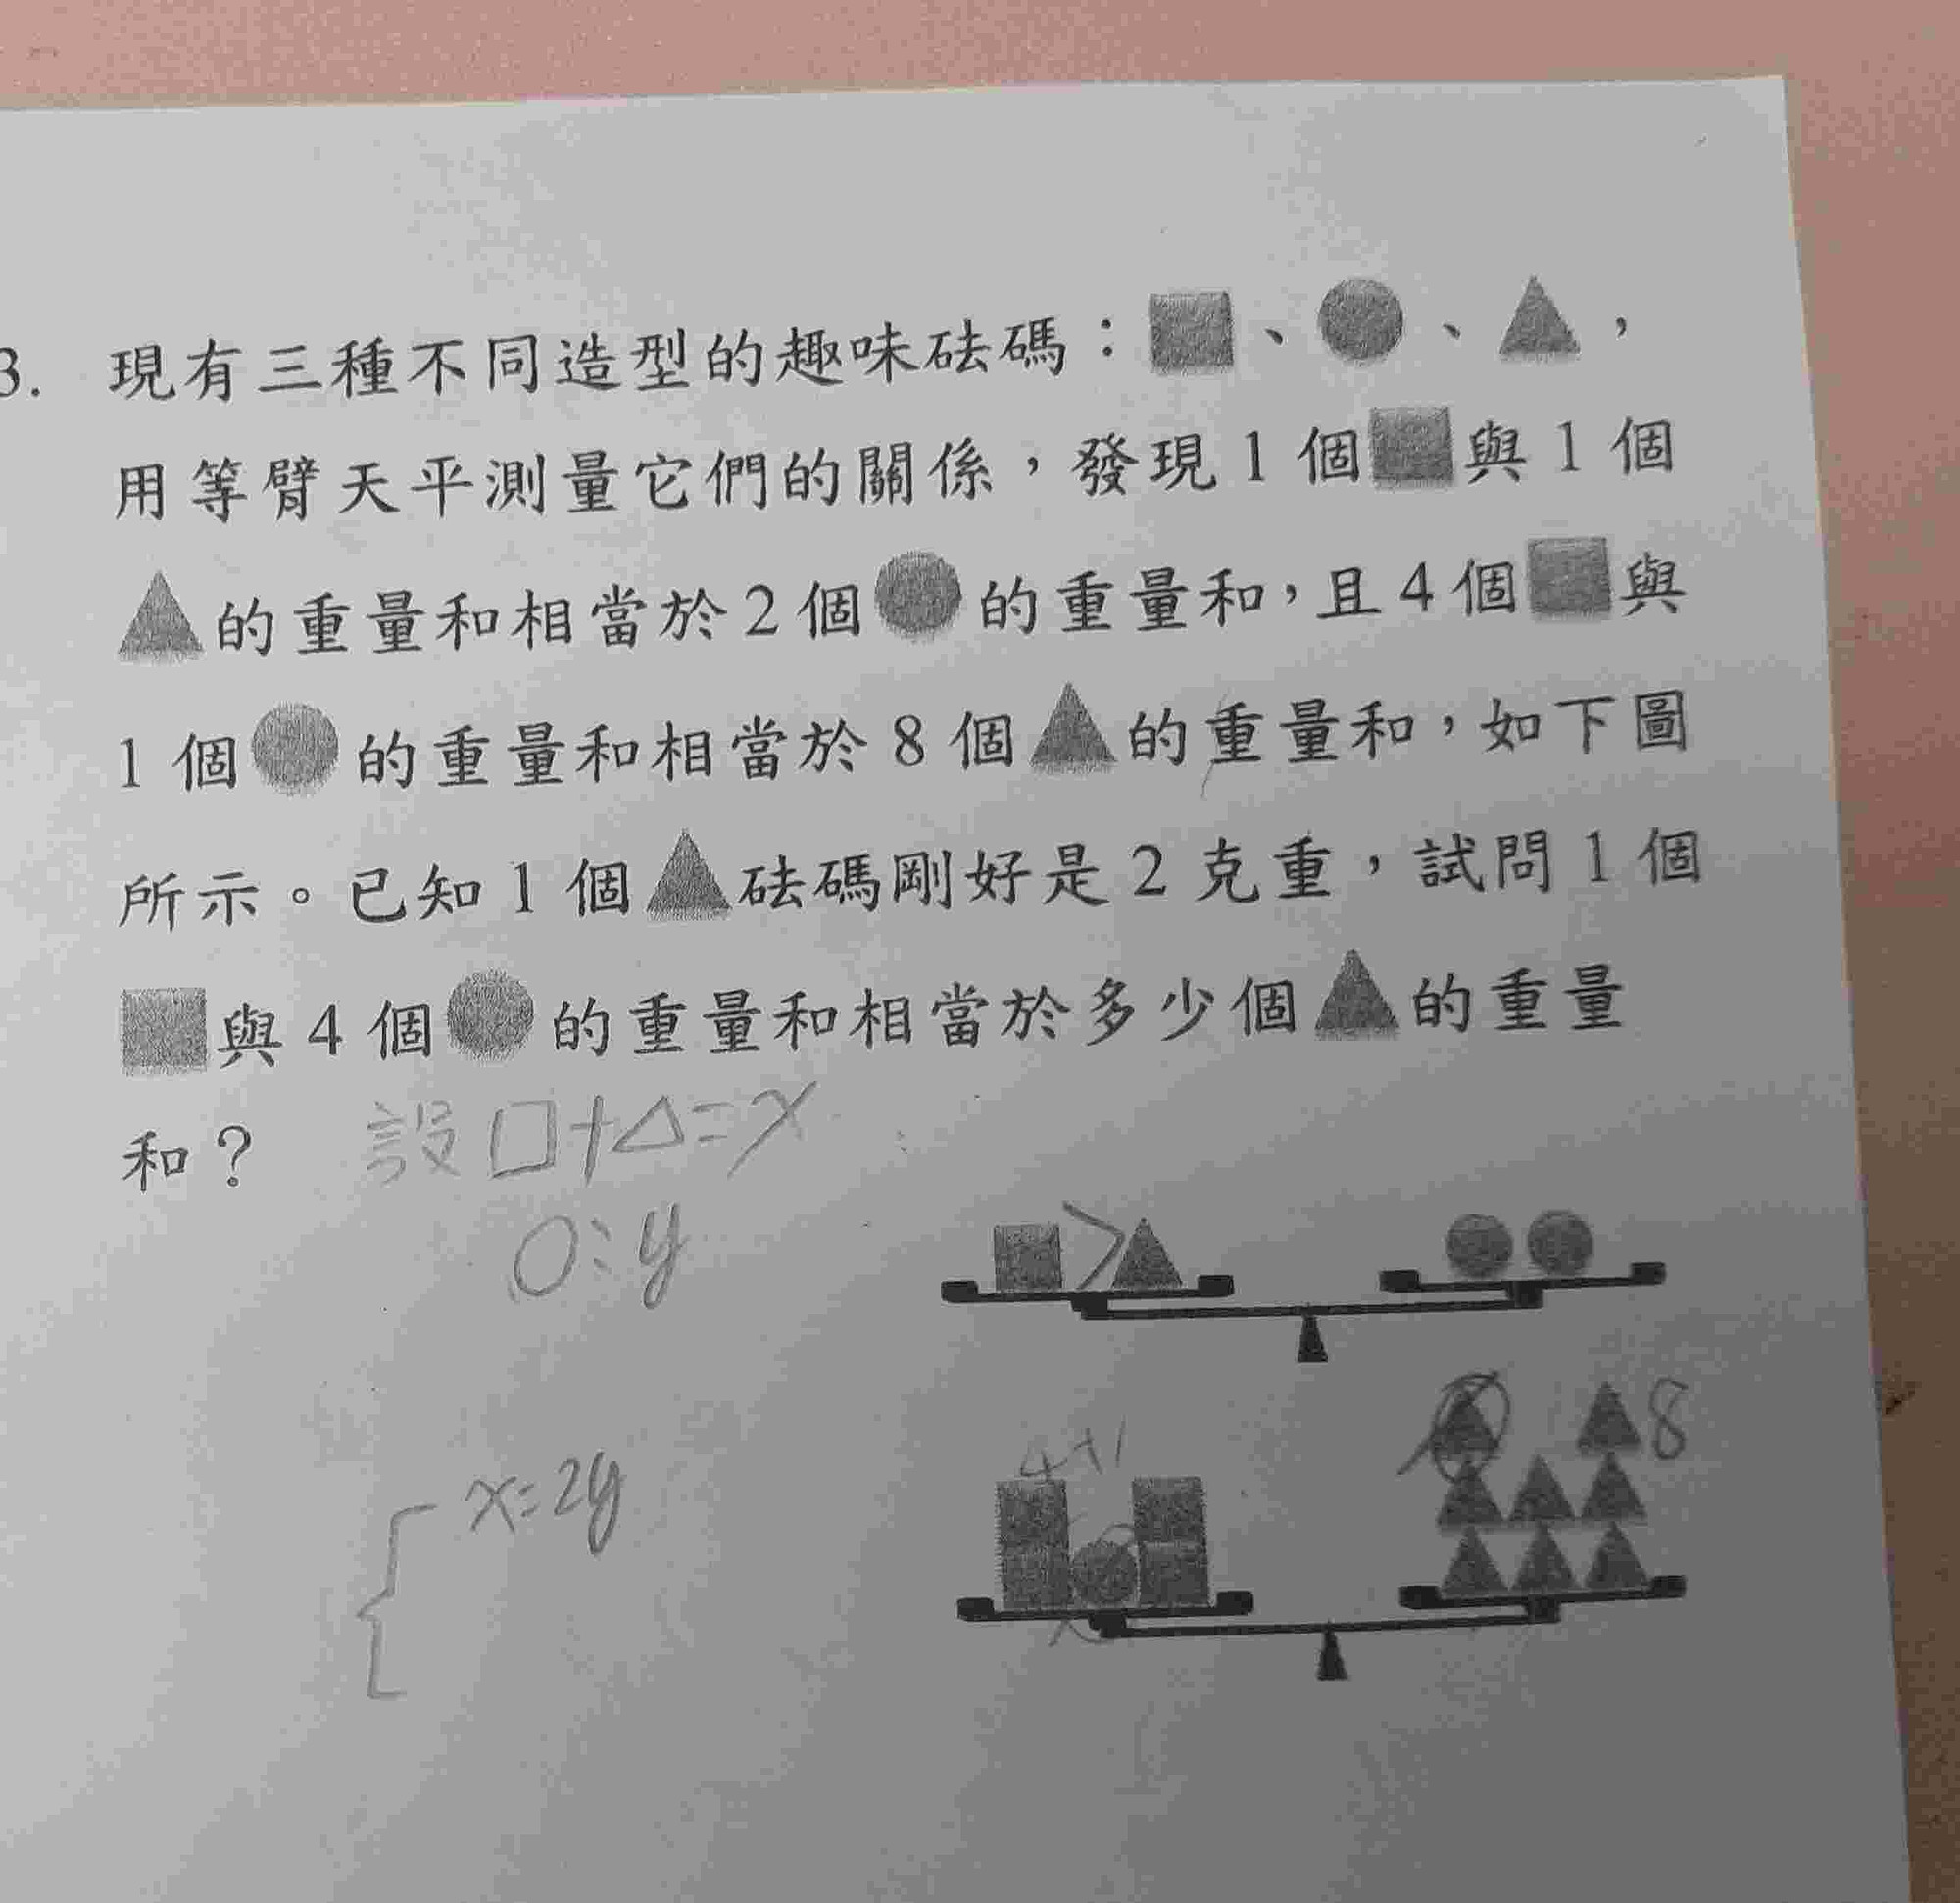 3. 現有三種不同造型的趣味砝碼：■、●、▲，
用等臂天平測量它們的關係，發現1個■與1個
▲的重量和相當於2個●的重量和，且4個■與
1個●的重量和相當於8個▲的重量和，如下圖
所示。已知1個▲砝碼剛好是2克重，試問1個
■與4個●的重量和相當於多少個▲的重量
和？
設□+△=x
○:y
x=2y
4+1
8